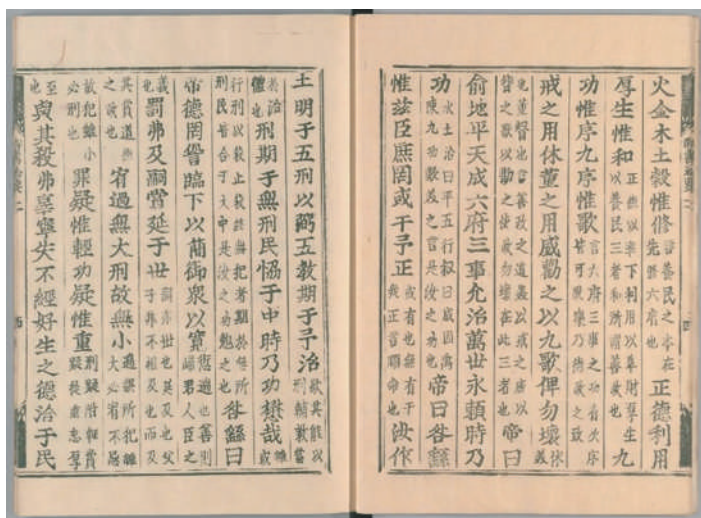 火金木土穀惟修言養民之本在先修六府也正德利用
厚生惟和正德以率下利用以阜財厚生以養民三者和所謂善政也九
功惟序九序惟歌言六府三事之功有次序皆可歌樂乃德政之致
戒之用休董之用威勸之以九歌俾勿壞休美
也董督也言善政之道美以戒之威以督之歌以勸之使政勿壞在此三者也帝曰
俞地平天成六府三事允治萬世永賴時乃
功水土治曰平五行叙曰成因禹陳九功歎美之言是汝之功也帝曰咎繇
惟茲臣庶罔或干予正或有也無有干我正言順命也汝作
士明于五刑以弼五教期于予治欲其能以刑輔教當
於治體也刑期于無刑民協于中時乃功懋哉雖或
行刑以殺止殺終無犯者期於無所刑民皆合于大中是汝之功勉之也咎繇曰
帝德罔愆臨下以簡御衆以寬愆過也善則歸君人臣之
義也罰弗及嗣賞延于世嗣亦世也延及也父子罪不相及也而及
其賞道德之政也宥過無大刑故無小過誤所犯雖大必宥不忌
故犯雖小必刑也罪疑惟輕功疑惟重刑疑附輕賞疑從重忠厚
至也與其殺弗辜寧失不經好生之德洽于民